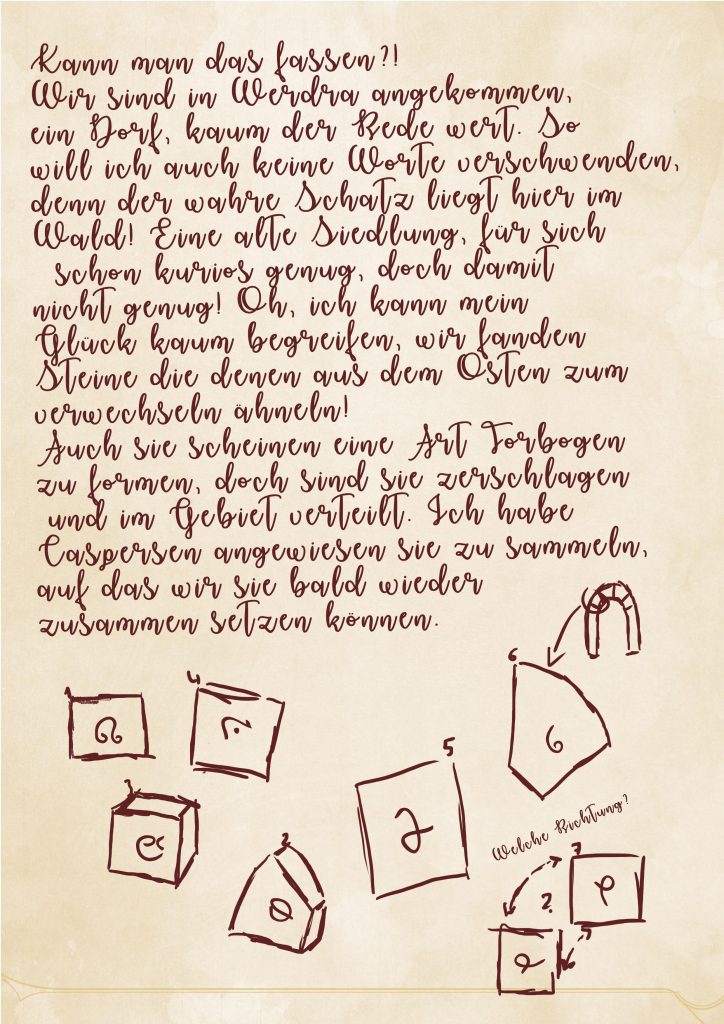 Kann man das fassen?!
Wir sind in Werdra angekommen,
ein Dorf, kaum der Rede wert. So
will ich auch keine Worte verschwenden,
denn der wahre Schatz liegt hier im
Wald! Eine alte Siedlung, für sich
schon kurios genug, doch damit
nicht genug! Oh, ich kann mein
Glück kaum begreifen, wir fanden
Steine die denen aus dem Osten zum
verwechseln ähneln!
Auch sie scheinen eine Art Torbogen
zu formen, doch sind sie zerschlagen
und im Gebiet verteilt. Ich habe
Caspersen angewiesen sie zu sammeln,
auf das wir sie bald wieder
zusammen setzen können.
6
1
4
5
3
2
Welche Richtung?
7
?